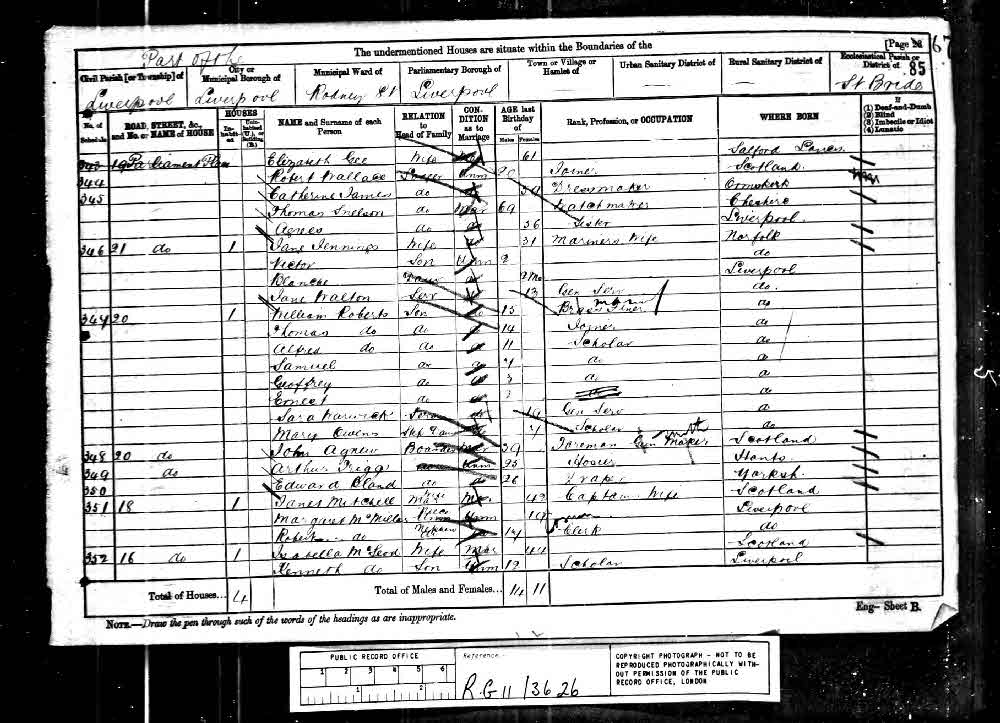 The undermentioned Houses are situate within the Boundaries of the
[Page 28
67
Part of the
Civil Parish [or Township] of
City or Municipal Borough of
Municipal Ward of
Parliamentary Borough of
Town or Village or Hamlet of
Urban Sanitary District of
Rural Sanitary District of
Ecclesiastical Parish or District of
85
Liverpool Liverpool Rodney St Liverpool St Bride
No. of Schedule
ROAD, STREET, &c., and No. or NAME of HOUSE
HOUSES
Inhabited
Uninhabited (U.), or Building (B.)
NAME and Surname of each Person
RELATION to Head of Family
CONDITION as to Marriage
AGE last Birthday of
Males Females
Rank, Profession, or OCCUPATION
WHERE BORN
If
(1) Deaf-and-Dumb
(2) Blind
(3) Imbecile or Idiot
(4) Lunatic
343 19 Parliament Place Elizabeth Gee Wife 61 Salford Lancs
344 Robert Wallace Unm Joiner Scotland
345 Catherine James do Dressmaker Ormskirk
Thomas Snelson do 69 Watchmaker Cheshire
Agnes do 36 Sister Liverpool
346 21 do 1 Jane Jennings Wife do 31 Mariners Wife Norfolk
Victor Son Unm 2 do
Blanche Liverpool
Jane Walton Serv 13 Gen Serv do
347 20 1 William Roberts Son do 15 Brass do
Thomas do do 14 Joiner do
Alfred do do 11 Scholar do
Samuel do 7 do
Geoffrey do 3 do
Ernest do 2 do
Sara Warwick 19 Gen Serv
Mary Owens Step Daur 7 Scholar do
348 20 do John Agnew Boarder 39 Foreman Gun Maker Scotland
349 do Arthur Trigg Unm Hosier Hants
350 Edward Bland do 26 Draper Yorksh.
351 18 1 Janes Mitchell Wife Mar 42 Captain Wife Scotland
Margaret McMillan Unm 19 Liverpool
Robert do 17 Clerk do
352 16 do 1 Isabella McLeod Wife Mar 44 Scotland
Kenneth do Son Unm 12 Scholar Liverpool
Total of Houses... 4
Total of Males and Females... 14 11
NOTE.—Draw the pen through such of the words of the headings as are inappropriate.
Eng— Sheet B.
PUBLIC RECORD OFFICE
1 2 3 4 5 6
1 2
Reference:-
R.G 11 / 3626
COPYRIGHT PHOTOGRAPH - NOT TO BE REPRODUCED PHOTOGRAPHICALLY WITHOUT PERMISSION OF THE PUBLIC RECORD OFFICE, LONDON